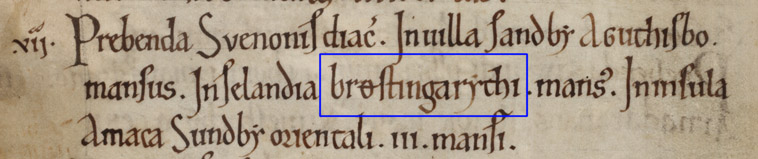 xııȷ. Prebenda Svenonis diac̄. In uilla sandby Aguthisbo.
mansus. In selandia brøstingarythi . mans᷒. In insula
Amaca Sundby orientali . ııı . mansi.